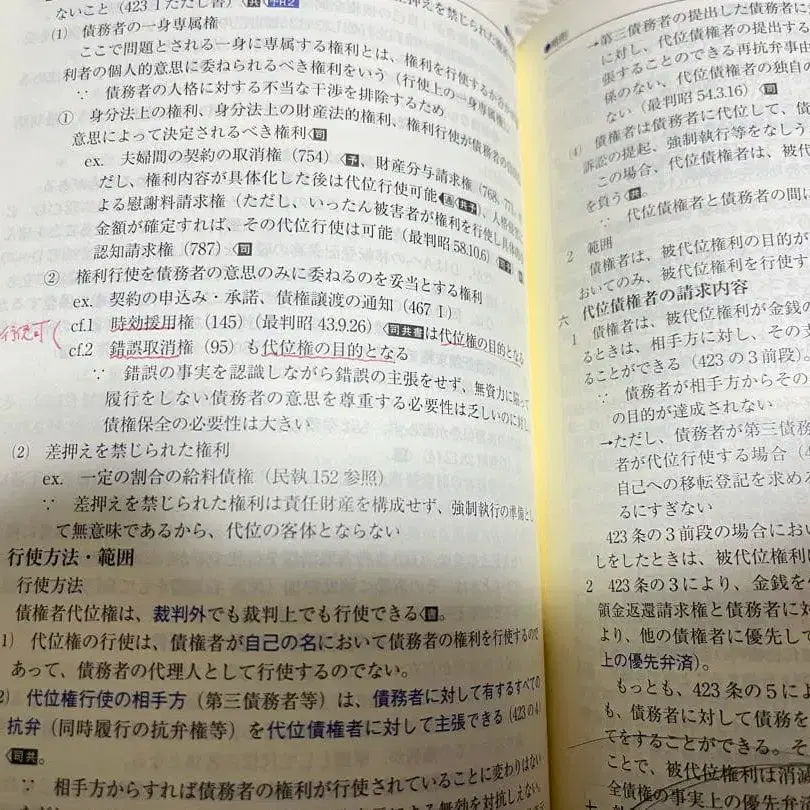 ないこと（423Ⅰただし書）共予R2
押えを禁じられた権利
(1) 債務者の一身専属権
ここで問題とされる一身に専属する権利とは、権利を行使するか否かが
利者の個人的意思に委ねられるべき権利をいう（行使上の一身専属権）。
∵ 債務者の人格に対する不当な干渉を排除するため
① 身分法上の権利、身分法上の財産法的権利、権利行使が債務者の
意思によって決定されるべき権利司
ex. 夫婦間の契約の取消権（754）予、財産分与請求権（768、771
だし、権利内容が具体化した後は代位行使可能
よる慰謝料請求権（ただし、いったん被害者が権利を行使し具体的な
金額が確定すれば、その代位行使は可能（最判昭58.10.6）
認知請求権（787）司
② 権利行使を債務者の意思のみに委ねるのを妥当とする権利
ex. 契約の申込み・承諾、債権譲渡の通知（467Ⅰ）
行使可
cf.1 時効援用権（145）（最判昭43.9.26）司共書は代位権の目的となる
cf.2 錯誤取消権（95）も代位権の目的となる
∵ 錯誤の事実を認識しながら錯誤の主張をせず、無資力に陥って
履行をしない債務者の意思を尊重する必要性は乏しいのに対し
債権保全の必要性は大きい
(2) 差押えを禁じられた権利
ex. 一定の割合の給料債権（民執152参照）
∵ 差押えを禁じられた権利は責任財産を構成せず、強制執行の準備とし
て無意味であるから、代位の客体とならない
行使方法・範囲
行使方法
債権者代位権は、裁判外でも裁判上でも行使できる書。
1) 代位権の行使は、債権者が自己の名において債務者の権利を行使するので
あって、債務者の代理人として行使するのでない。
2) 代位権行使の相手方（第三債務者等）は、債務者に対して有するすべての
抗弁（同時履行の抗弁権等）を代位債権者に対して主張できる（423の4）
司共。
∵ 相手方からすれば債務者の権利が行使されていることに変わりはない
による無効を対抗しえない。
→第三債務者の提出した債務者に
に対し、代位債権者の提出する
張することのできる再抗弁事由
係のない、代位債権者の独自の
ない（最判昭54.3.16）司
(4) 債権者は債務者に代位して、債
訴訟の提起、強制執行等をなしう
この場合、代位債権者は、被代
を負う共。
∵ 代位債権者と債務者の間に
2 範囲
債権者は、被代位権利の目的が
おいてのみ、被代位権利を行使す
六 代位債権者の請求内容
1 債権者は、被代位権利が金銭の
るときは、相手方に対し、その支
ることができる（423の3前段）。
∵ 債務者が相手方からその
の目的が達成されない
→ただし、債務者が第三債務
者が代位行使する場合（4
自己への移転登記を求める
るにすぎない
423条の3前段の場合にお
しをしたときは、被代位権利は
2 423条の3により、金銭を
領金返還請求権と債務者に対
より、他の債権者に優先して
上の優先弁済）。
もっとも、423条の5によ
も、債務者に対して債務を
てをすることができる。そ
ことで、被代位権利は消滅
全債権の事実上の優先弁